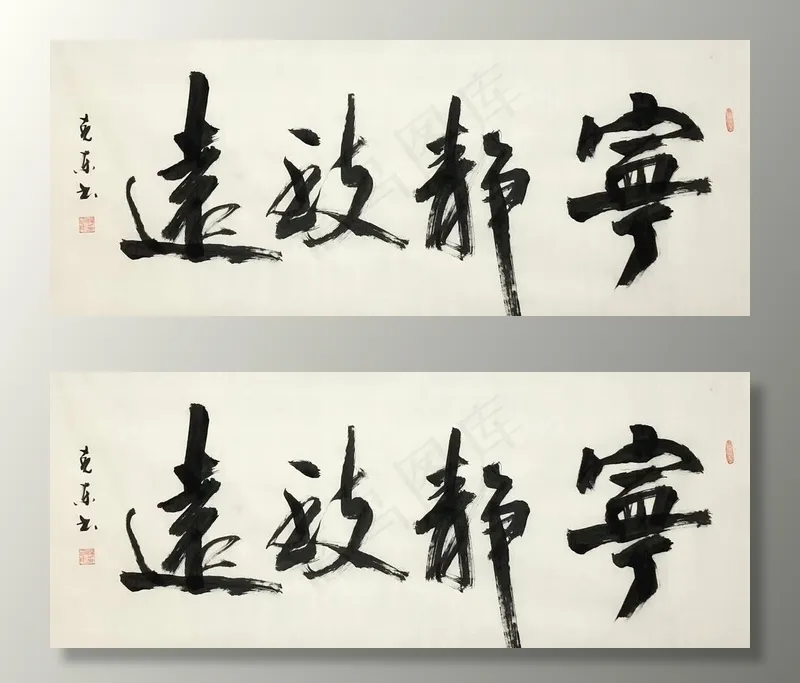 寧靜致遠
克東书
寧靜致遠
克東书